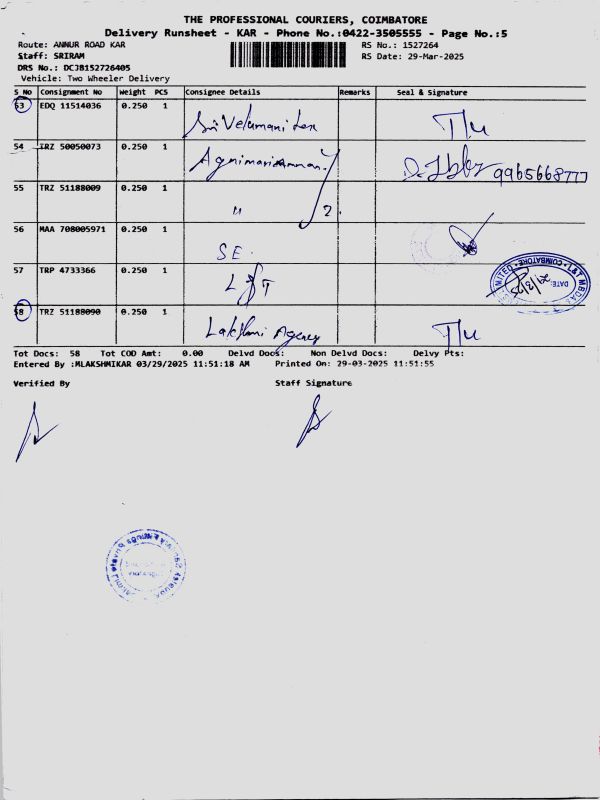 THE PROFESSIONAL COURIERS, COIMBATORE
Delivery Runsheet - KAR - Phone No.:0422-3505555 - Page No.:5
Route: ANNUR ROAD KAR
RS No.: 1527264
Staff: SRIRAM
RS Date: 29-Mar-2025
DRS No.: DCJB152726405
Vehicle: Two Wheeler Delivery
S No Consignment No Weight PCS Consignee Details Remarks Seal & Signature
53 EDQ 11514036 0.250 1
Sri Velumani Tex
54 TRZ 50050073 0.250 1
9965668777
55 TRZ 51188009 0.250 1
" 2.
56 MAA 708005971 0.250 1
SE.
57 TRP 4733366 0.250 1
L&T
DATE: 29/3/25
58 TRZ 51188090 0.250 1
Lakshmi Agency
Tot Docs: 58 Tot COD Amt: 0.00 Delvd Docs: Non Delvd Docs: Delvy Pts:
Entered By :MLAKSHMIKAR 03/29/2025 11:51:18 AM Printed On: 29-03-2025 11:51:55
Verified By Staff Signature